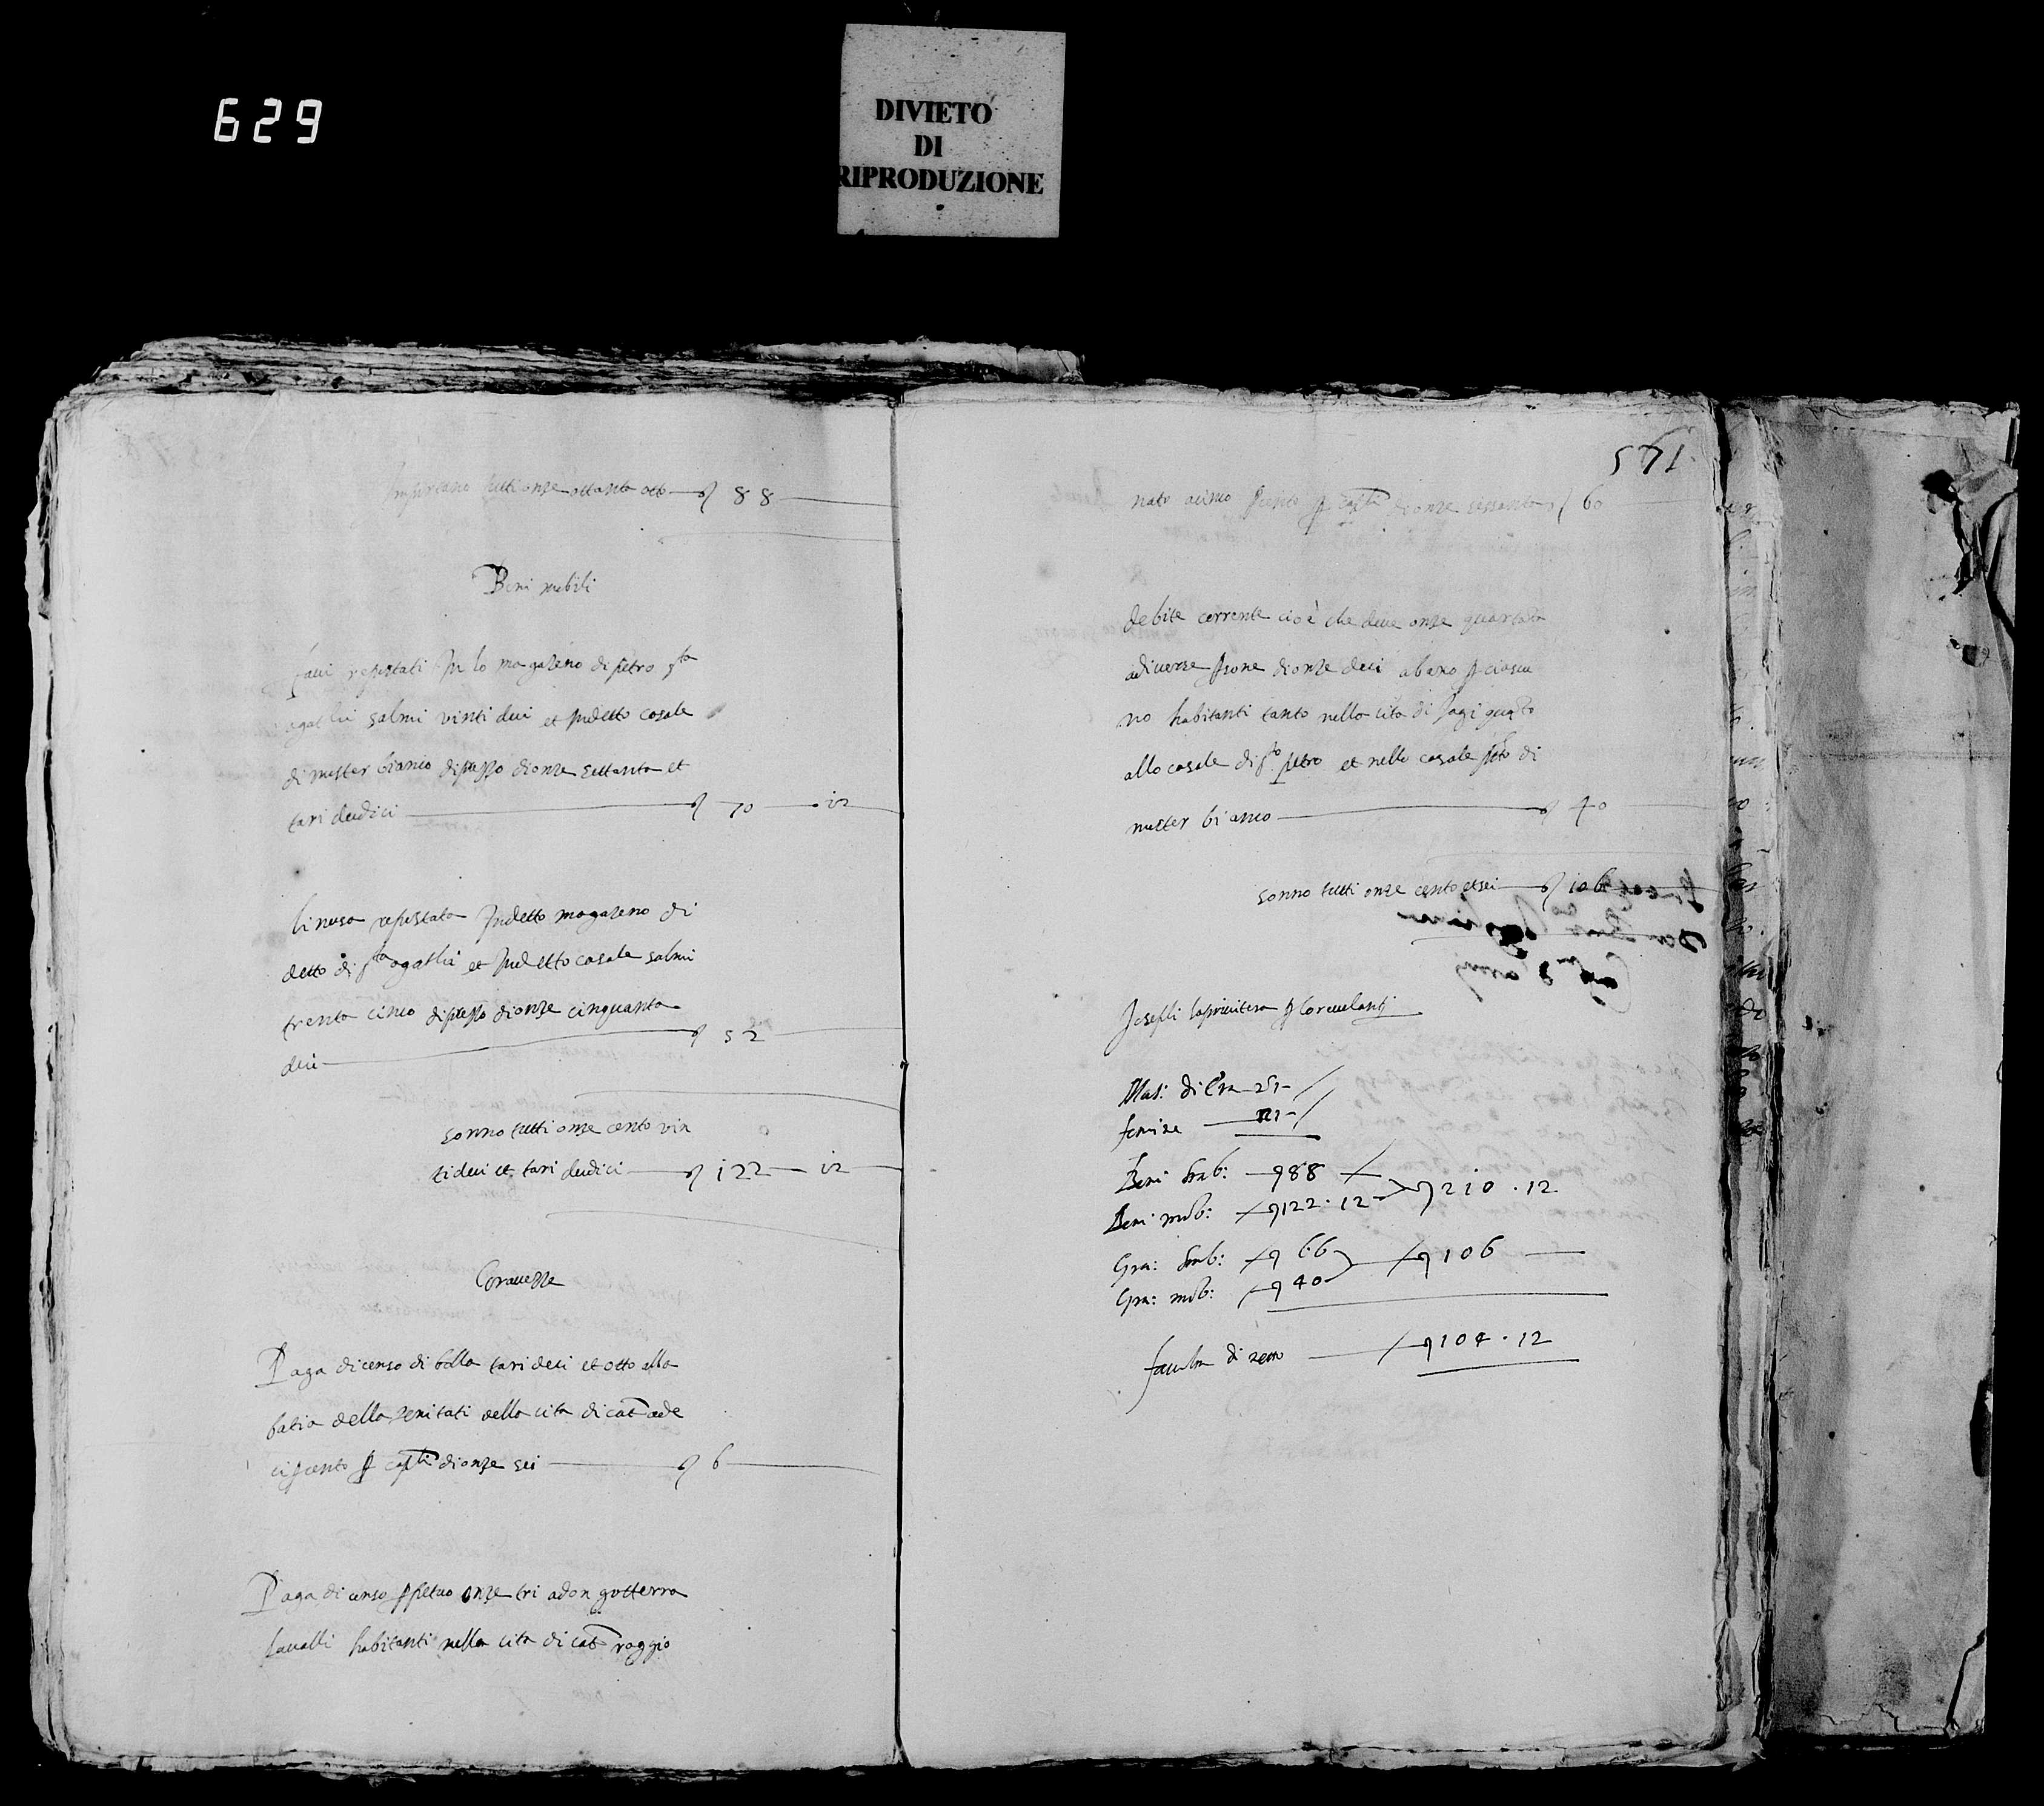 629
DIVIETO
DI
RIPRODUZIONE
Importano tutti onze ottanta otto 88
Beni mobili
favi repostati In lo magazeno di petro sta
agathi salmi vinti dui et Indetto casale
di mister bianco di prezzo di onze settanta et
tari dudici 70 12
linusa repostata Indetto magazeno di
detto di sta agathi et Indetto casale salmi
trenta cinco di prezzo di onze cinquanta
dui 52
sonno tutti onze cento vin
ti dui et tari dudici 122 12
Gravezze
Paga di censo di bolla tari deci et otto alla
batia della trinitati della cita di cat a de
ci p cento p cap.li di onze sei 6
Paga di censo ppetuo onze tri a don gutterra
habitanti nella cita di cat raggio
571
nato a cinco p cento p cap.li di onze sessanta 60
debite corrente cioè che deve onze quaranta
a diverze psone di onze deci abaxo p ciascu
no habitanti tanto nella cita di Jaci quanto
allo casale di sto petro et nello casale di
mister bianco 40
sonno tutti onze cento et sei 106
Josephi
Mas: di
femine
Beni Stab: 88
Beni mob: 122.12 210.12
Gra: Stab: 66
Gra: mob: 40 106
faculta di netto 104.12